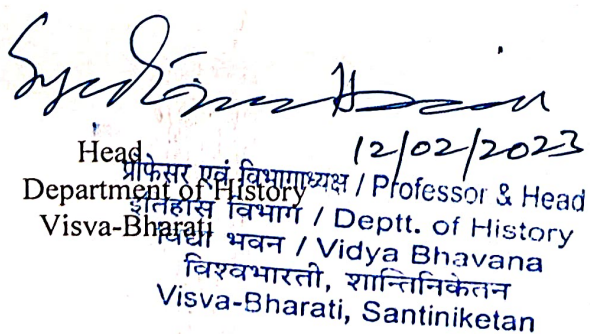 12/02/2023
Head
Department of History
Visva-Bharati
प्रोफेसर एवं विभागाध्यक्ष / Professor & Head
इतिहास विभाग / Deptt. of History
विद्या भवन / Vidya Bhavana
विश्वभारती, शान्तिनिकेतन
Visva-Bharati, Santiniketan